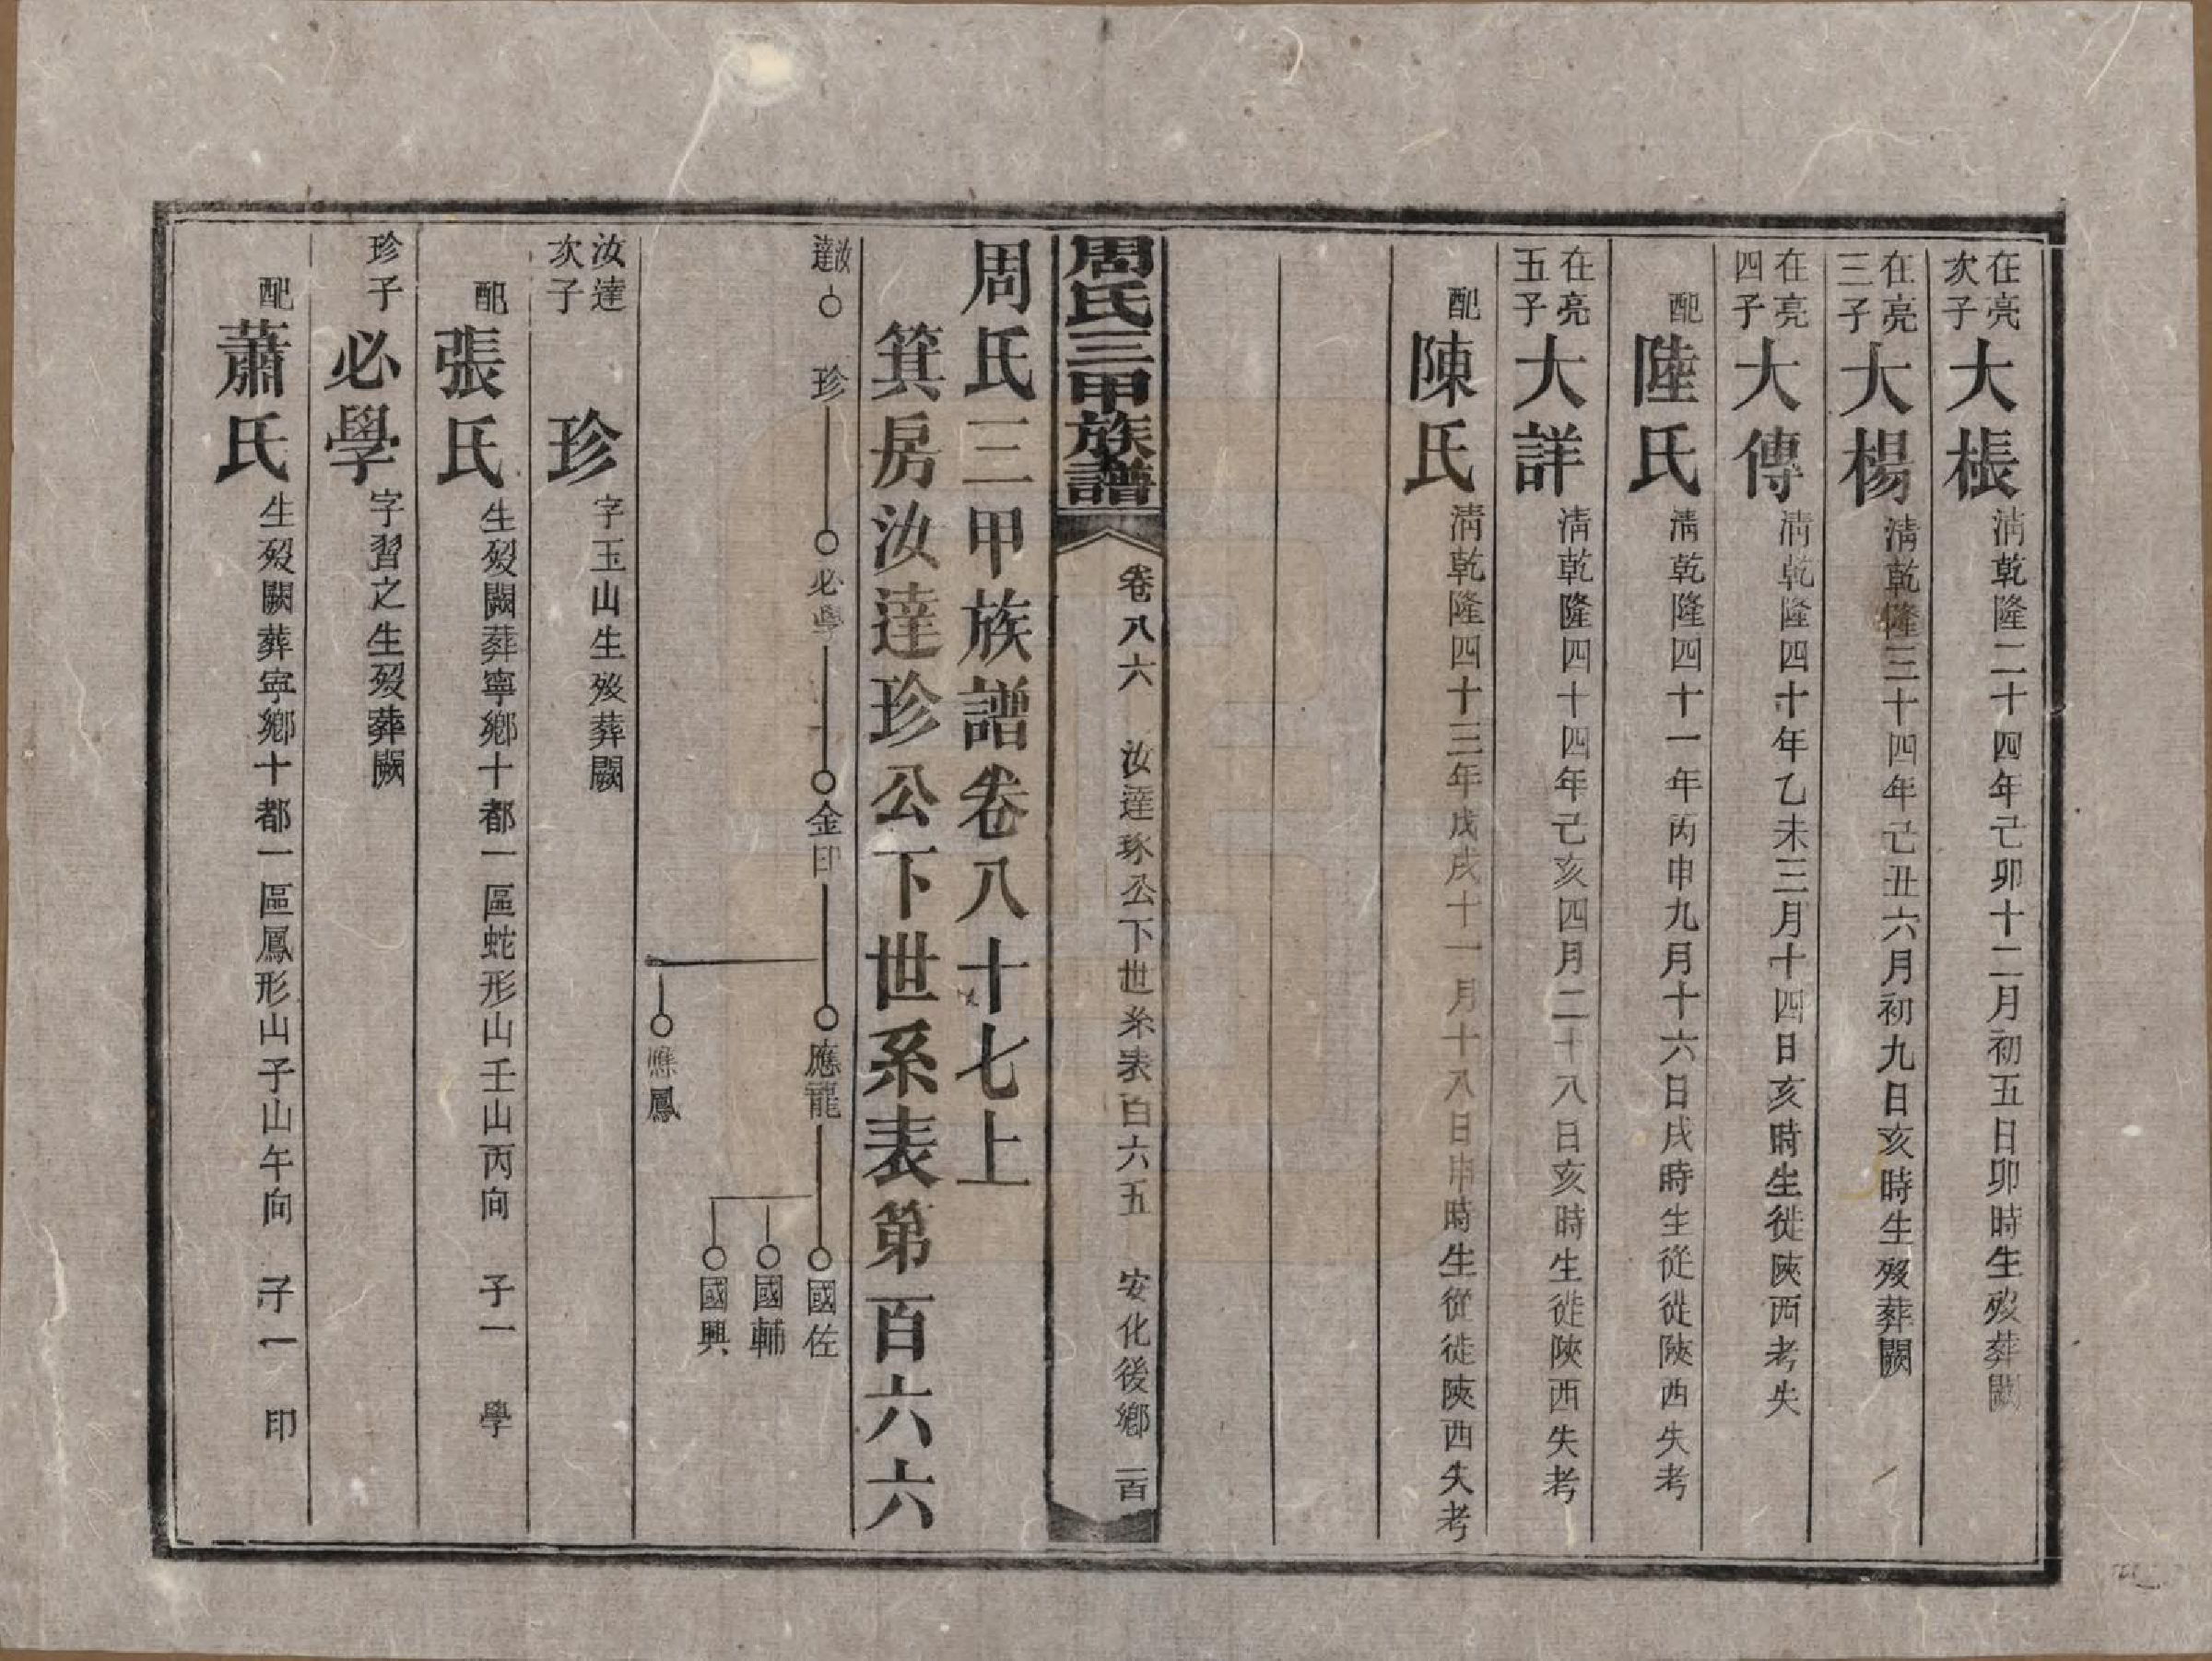 在亮次子 大棖 清乾隆二十四年己卯十二月初五日卯時生歿葬闕
在亮三子 大楊 清乾隆三十四年己丑六月初九日亥時生歿葬闕
在亮四子 大傳 清乾隆四十年乙未三月十四日亥時生徙陝西考失
配 陸氏 清乾隆四十一年丙申九月十六日戌時生從徙陝西失考
在亮五子 大詳 清乾隆四十四年己亥四月二十八日亥時生徙陝西失考
配 陳氏 清乾隆四十三年戊戌十一月十八日申時生從徙陝西失考
周氏三甲族譜 卷八六 汝達琢公下世系表百六五 安化後鄉 一百
周氏三甲族譜卷八十七上
箕房汝達珍公下世系表第百六六
汝達 珍 必學 金印 應龍 國佐
國輔
國興
應鳳
汝達次子 珍 字玉山生歿葬闕
配 張氏 生歿闕葬寧鄉十都一區蛇形山壬山丙向 子一 學
珍子 必學 字習之生歿葬闕
配 蕭氏 生歿闕葬寧鄉十都一區鳳形山子山午向 子一 印